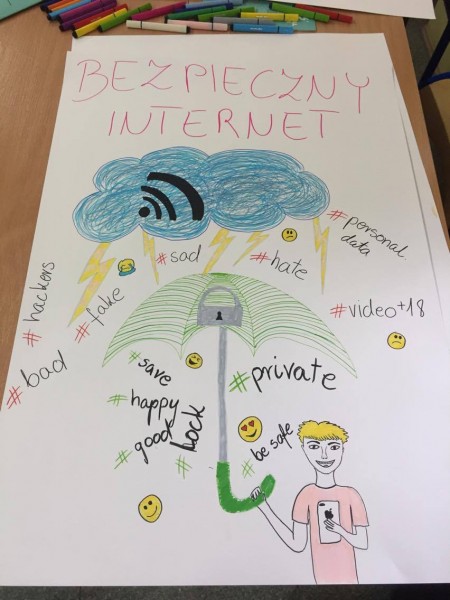 BEZPIECZNY
INTERNET
#personal
data
#sad
#hate
#hackers
#fake
#video+18
#bad
#save
#private
#happy
#good
#lock
#be safe